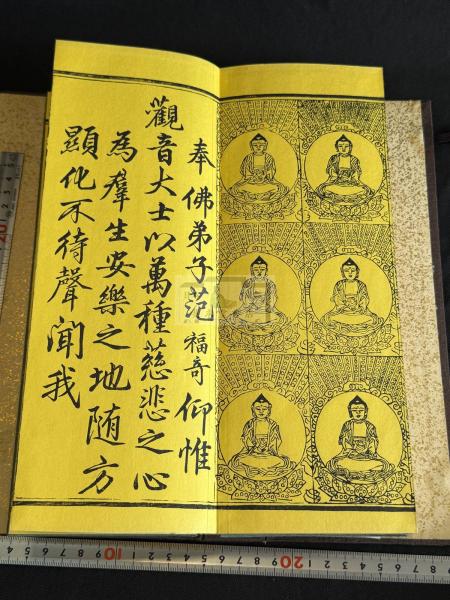 奉佛弟子范福奇仰惟
觀音大士以萬種慈悲之心
為羣生安樂之地随方
顯化不待聲聞我